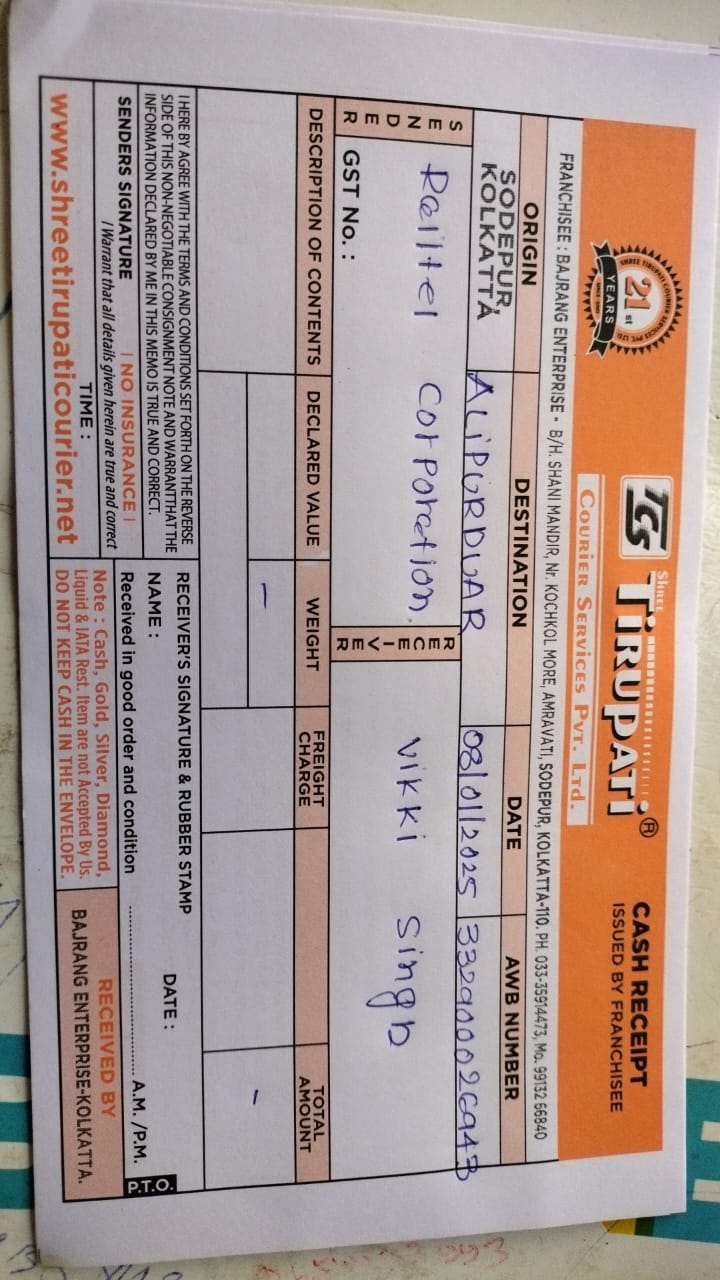 SHREE TIRUPATI COURIER SERVICES PVT. LTD.
21st
YEARS
TCS
SHREE
TIRUPATI®
COURIER SERVICES PVT. LTD.
CASH RECEIPT
ISSUED BY FRANCHISEE
FRANCHISEE : BAJRANG ENTERPRISE - B/H. SHANI MANDIR, Nr. KOCHKOL MORE, AMRAVATI, SODEPUR, KOLKATTA-110. PH. 033-35914473, Mo. 99132 66840
ORIGIN DESTINATION DATE AWB NUMBER
SODEPUR, KOLKATTA ALIPURDUAR 08/01/2025 332900026943
SENDER Railtel Corporation. RECEIVER Vikki Singh
GST No. :
DESCRIPTION OF CONTENTS DECLARED VALUE WEIGHT FREIGHT CHARGE TOTAL AMOUNT
- -
I HERE BY AGREE WITH THE TERMS AND CONDITIONS SET FORTH ON THE REVERSE
SIDE OF THIS NON-NEGOTIABLE CONSIGNMENT NOTE AND WARRANT THAT THE
INFORMATION DECLARED BY ME IN THIS MEMO IS TRUE AND CORRECT.
SENDERS SIGNATURE | NO INSURANCE |
I Warrant that all details given herein are true and correct
TIME :
www.shreetirupaticourier.net
RECEIVER'S SIGNATURE & RUBBER STAMP
NAME : DATE :
Received in good order and condition ........................ A.M. /P.M.
P.T.O.
Note : Cash, Gold, Silver, Diamond,
Liquid & IATA Rest. Item are not Accepted By Us.
DO NOT KEEP CASH IN THE ENVELOPE.
RECEIVED BY
BAJRANG ENTERPRISE-KOLKATTA.